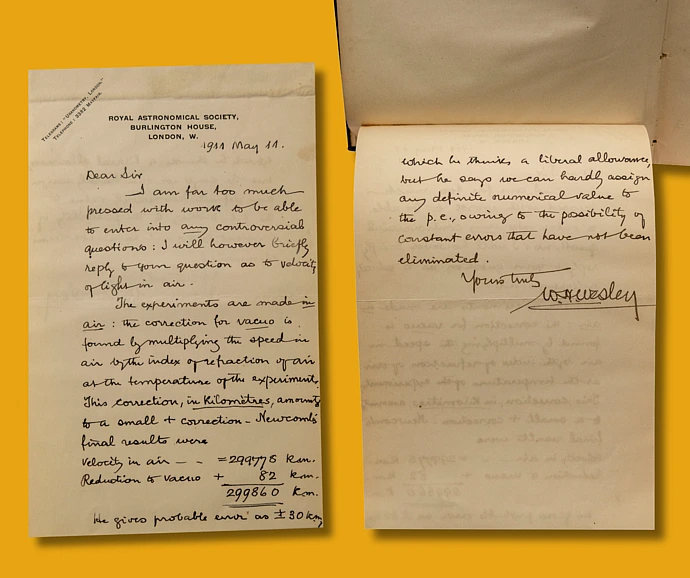 TELEGRAMS: "UNDOMETRO, LONDON."
TELEPHONE: 3382 MAYFAIR.
ROYAL ASTRONOMICAL SOCIETY,
BURLINGTON HOUSE,
LONDON, W.
1911 May 11.
Dear Sir
I am far too much
pressed with work to be able
to enter into any controversial
questions: I will however briefly
reply to your question as to velocity
of light in air.
The experiments are made in
air: the correction for vacuo is
found by multiplying the speed in
air by the index of refraction of air
at the temperature of the experiment.
This correction, in Kilometres, amounts
to a small + correction - Newcomb's
final results were
Velocity in air — — = 299778 Km.
Reduction to vacuo + 82 Km.
299860 Km.
He gives probable error as ± 30 km,
which he thinks a liberal allowance,
but he says we can hardly assign
any definite numerical value to
the p.e., owing to the possibility of
constant errors that have not been
eliminated.
Yours truly
W.H. Wesley